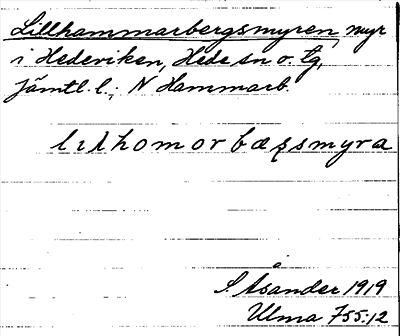 Lillhammarbergsmyren, myr
i Hedeviken, Hede sn o. tg,
Jämtl. l.; N Hammarb.
lılhomorbæʂsmyra
S Åsander 1919
Ulma 755:12